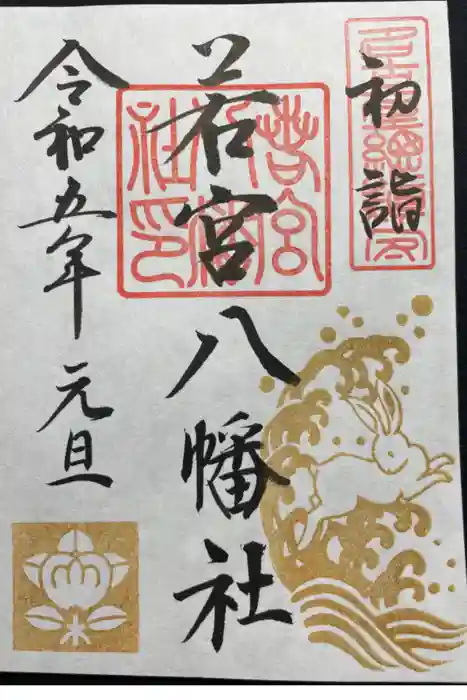 初詣
若宮八幡社
令和五年元旦
若宮八幡社印